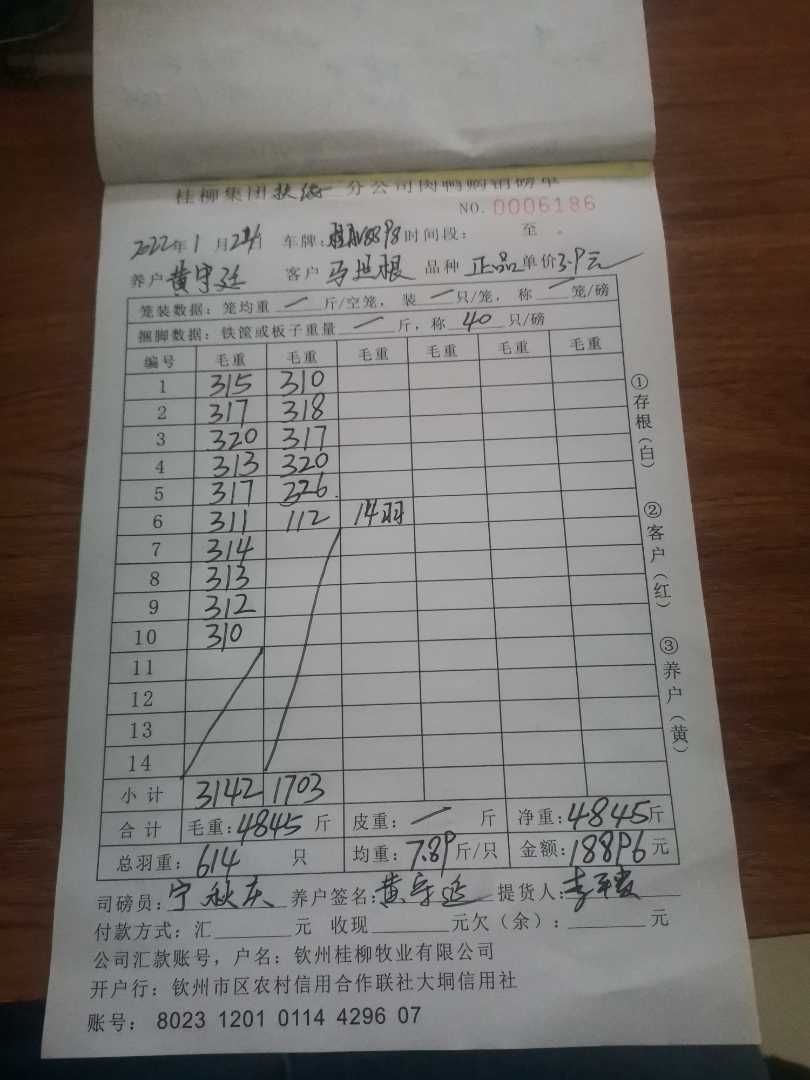 桂柳集团扶绥一分公司肉鸭购销磅单
NO. 0006186
2022年1月24日 车牌: 时间段: 至 。
养户 黄守廷 客户 马旦根 品种 正品 单价3.9元
笼装数据: 笼均重 一 斤/空笼, 装 一 只/笼, 称 一 笼/磅
捆脚数据: 铁筐或板子重量 一 斤, 称 40 只/磅
编号 毛重 毛重 毛重 毛重 毛重 毛重
1 315 310
2 317 318
3 320 317
4 313 320
5 317 226
6 311 112 14羽
7 314
8 313
9 312
10 310
11
12
13
14
小计 3142 1703
合计 毛重:4845 斤 皮重: 一 斤 净重:4845斤
总羽重: 614 只 均重: 7.89斤/只 金额:18896元
司磅员: 宁秋庆 养户签名: 黄守廷 提货人:
付款方式: 汇 元 收现 元欠(余): 元
公司汇款账号, 户名: 钦州桂柳牧业有限公司
开户行: 钦州市区农村信用合作联社大垌信用社
账号: 8023 1201 0114 4296 07
①存根(白)
②客户(红)
③养户(黄)